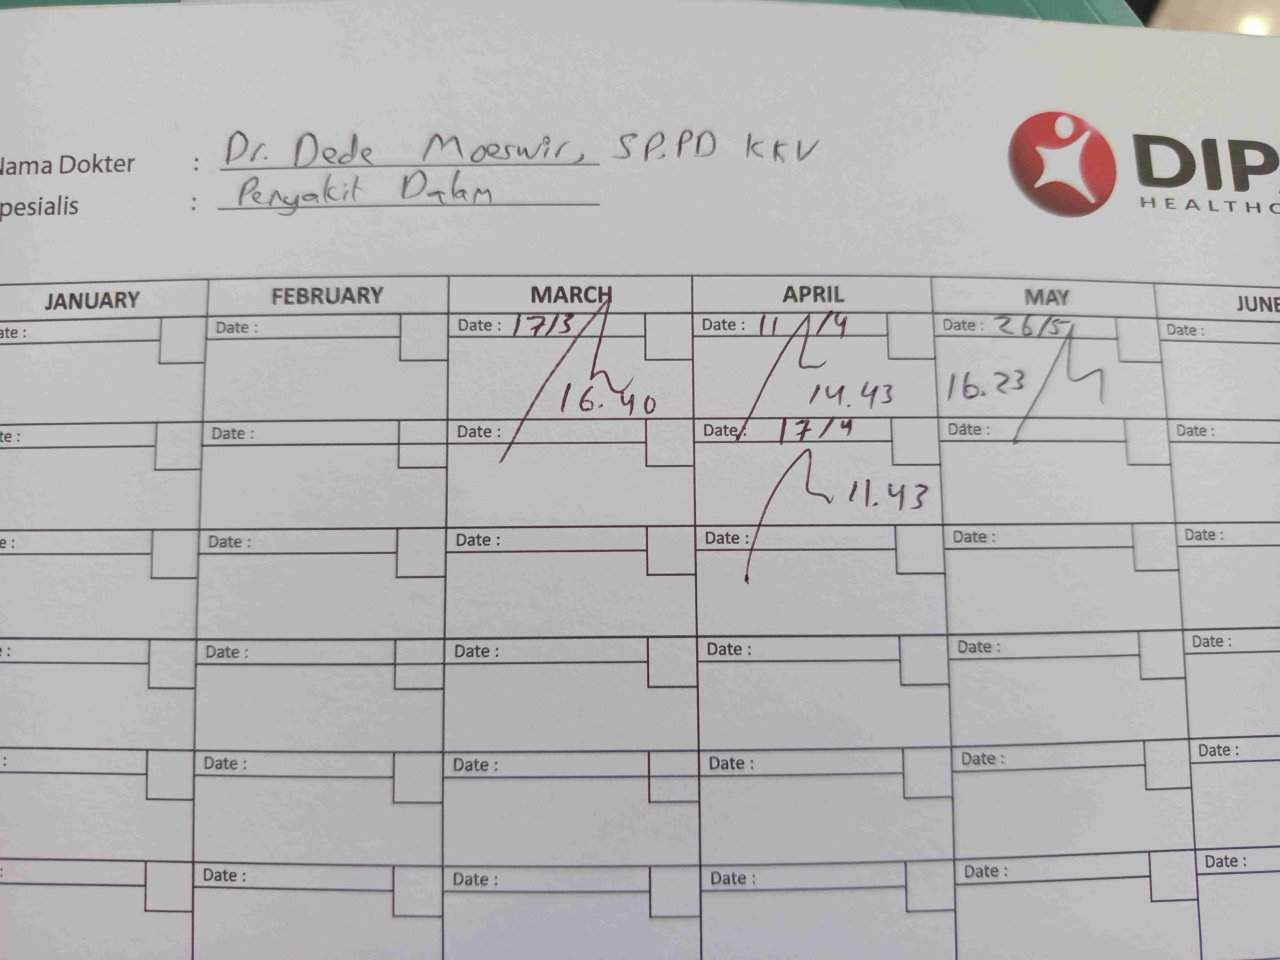 Nama Dokter : Dr. Dede Moeswir, SP.PD KKV
Spesialis : Penyakit Dalam
DIP
HEALTHC
JANUARY FEBRUARY MARCH APRIL MAY JUNE
ate : Date : Date : 17/3 Date : 11/4 Date : 26/5 Date :
16.40 14.43 16.23
te : Date : Date : Date : 17/4 Date : Date :
11.43
e : Date : Date : Date : Date : Date :
: Date : Date : Date : Date : Date :
: Date : Date : Date : Date : Date :
: Date : Date : Date : Date : Date :